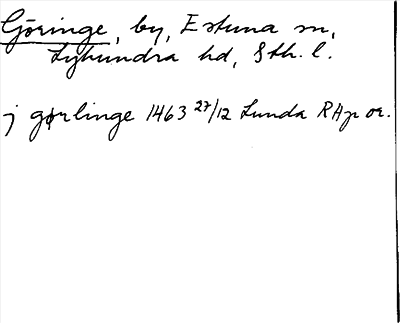 Göringe, by, Estuna sn,
Lyhundra hd, Sth. l.
j gørlinge 1463 27/12 Lunda RAp or.